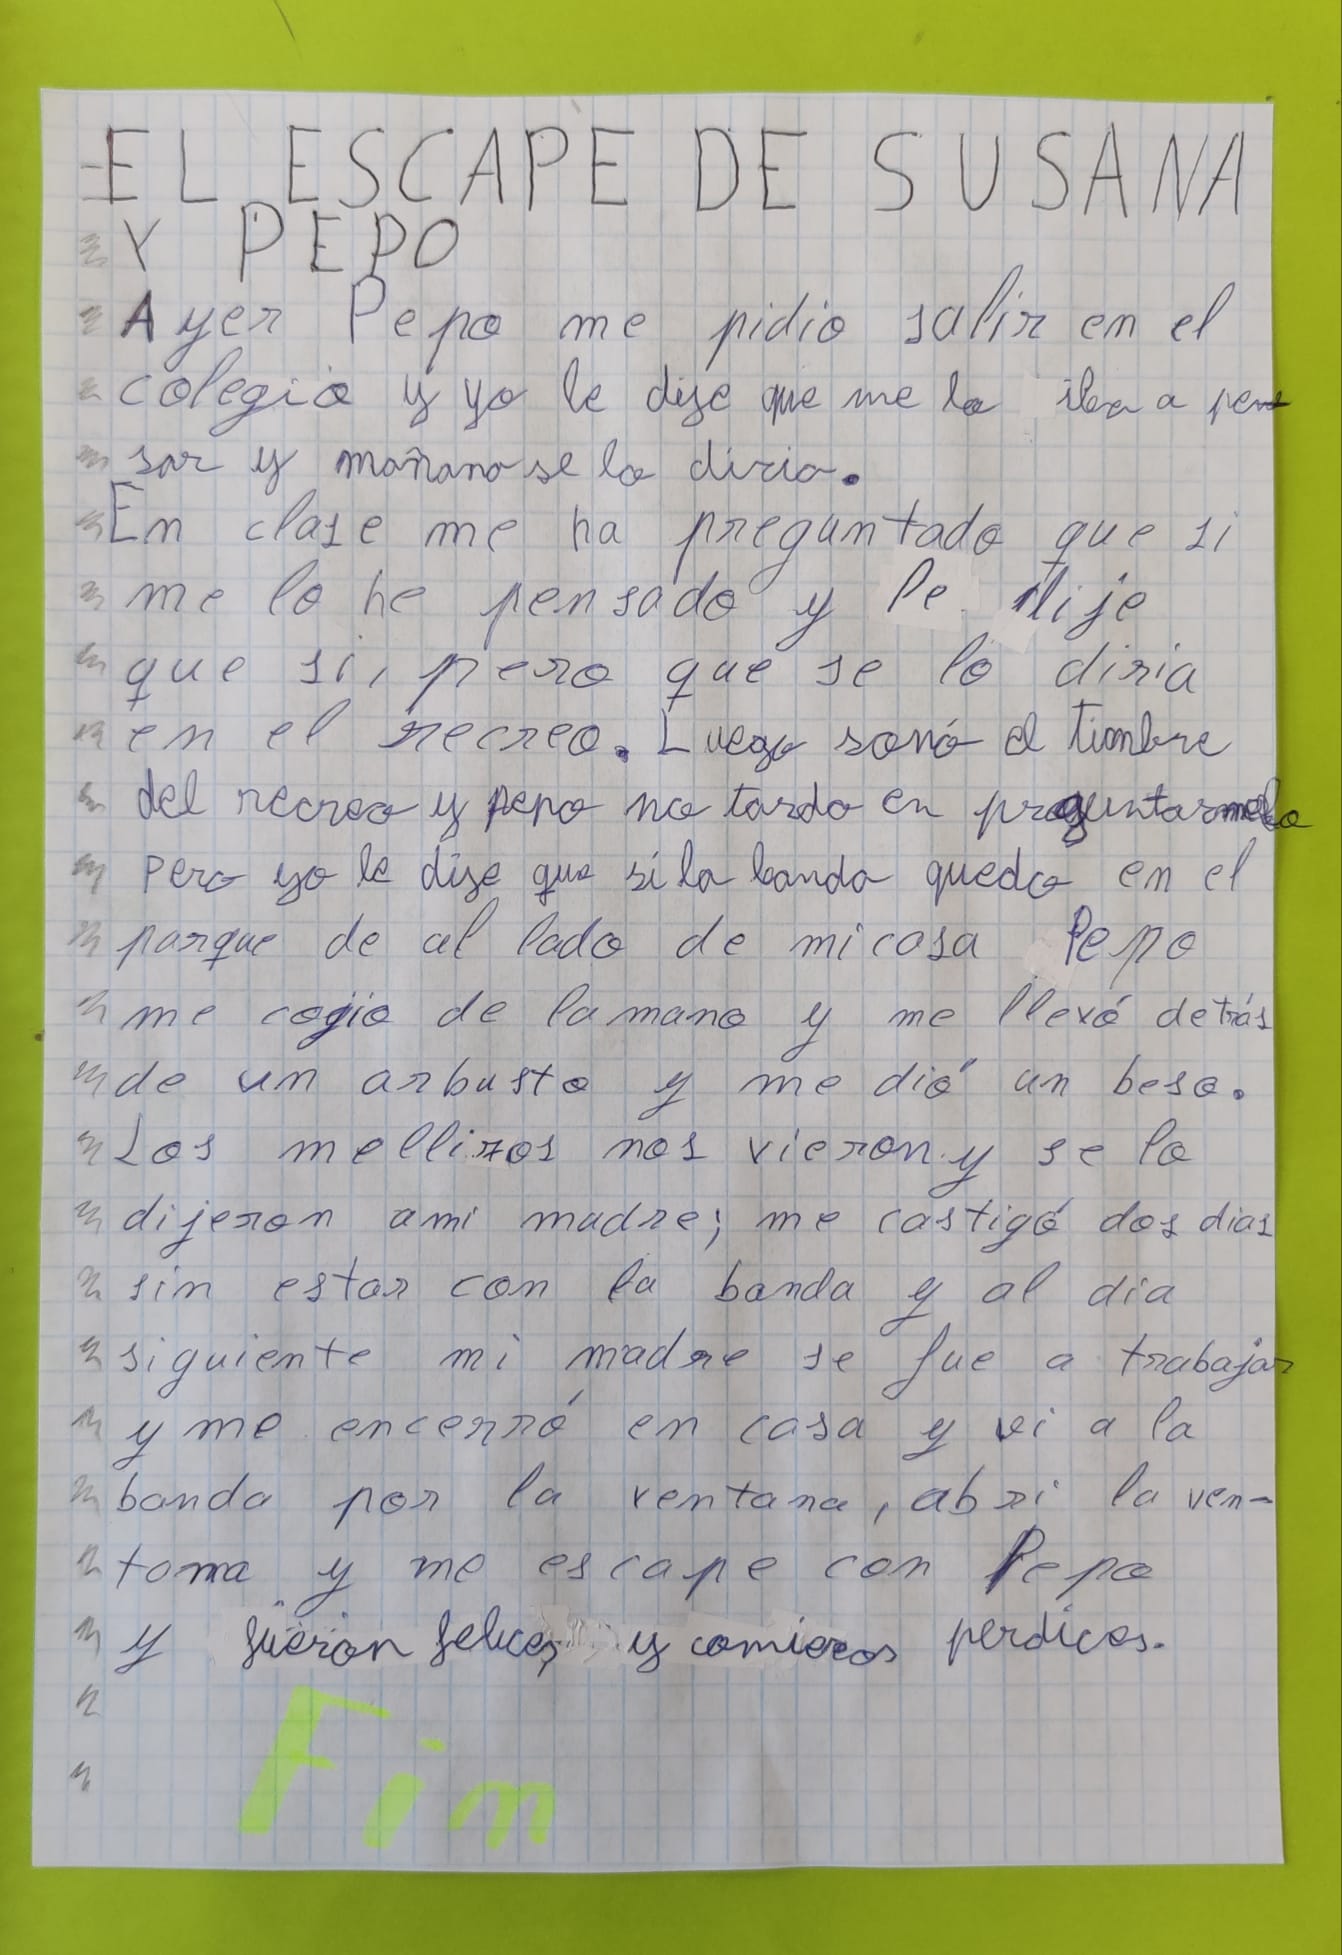 EL ESCAPE DE SUSANA
Y PEPO
Ayer Pepo me pidio salir en el
colegio y yo le dije que me lo iba a pen
sar y mañana se lo diria.
En clase me ha preguntado que si
me lo he pensado y le dije
que si, pero que se lo diria
en el recreo. Luego sonó el timbre
del recreo y pepo no tardo en preguntarmelo
pero yo le dije que si la banda quedo en el
parque de al lado de mi casa Pepo
me cogio de la mano y me llevó detrás
de un arbusto y me dió un beso.
Los mellizos nos vieron y se lo
dijeron a mi madre; me castigó dos dias
sin estar con la banda y al dia
siguiente mi madre se fue a trabajar
y me encerró en casa y vi a la
banda por la ventana, abri la ven-
tana y me escape con Pepo
y fueron felices, y comieros perdices.
Fin